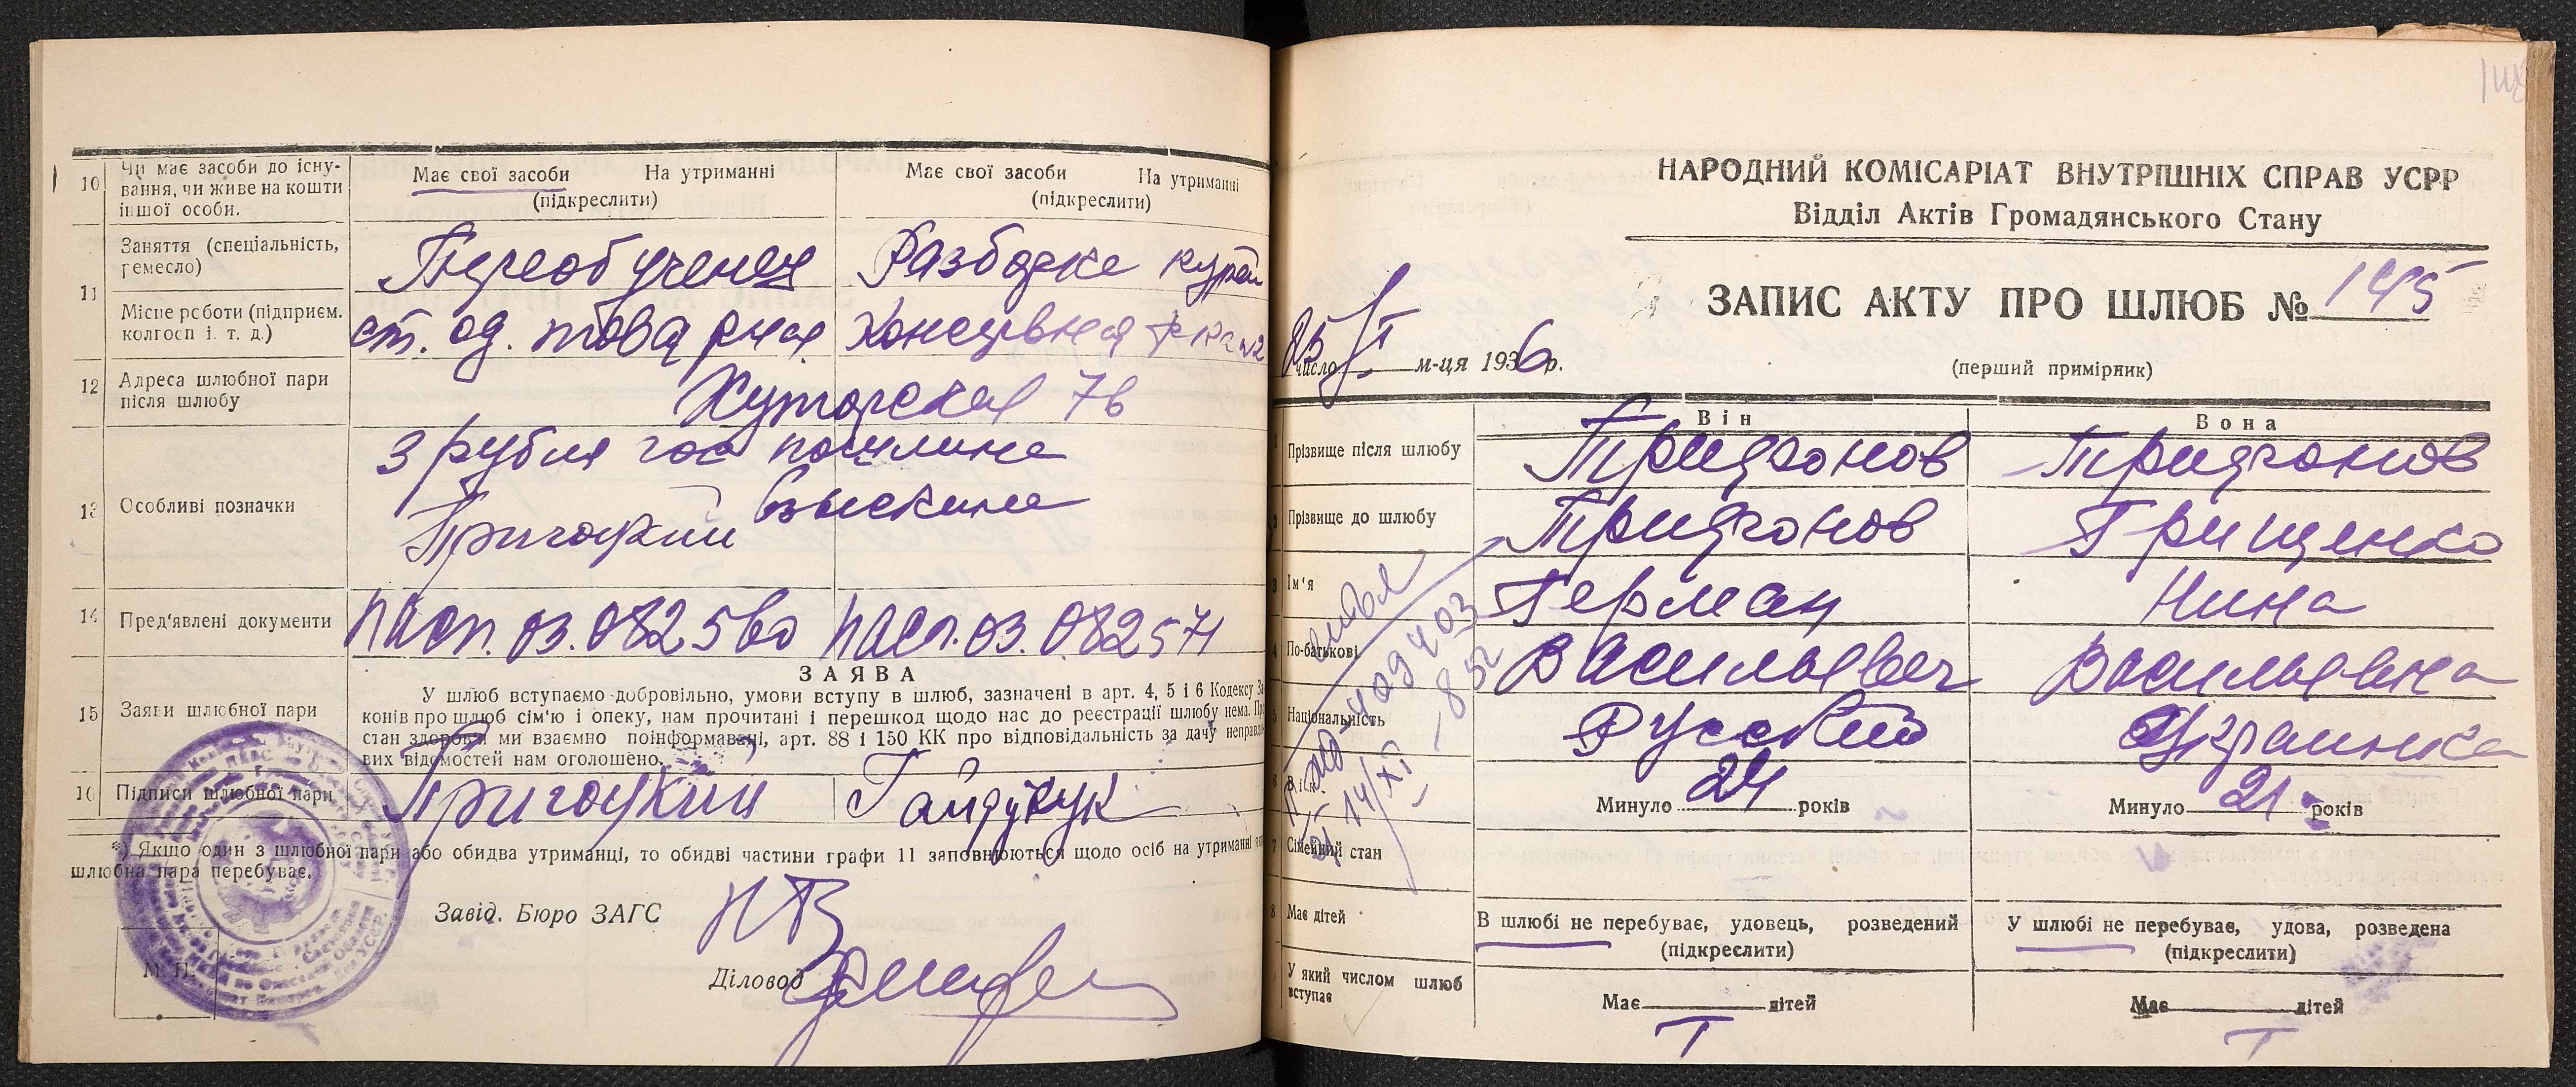 10 Чи має засоби до існу-
вання, чи живе на кошти
іншої особи.
Має свої засоби На утриманні
(підкреслити)
Має свої засоби На утриманні
(підкреслити)
11 Заняття (спеціальність,
ремесло)
Місце роботи (підприєм.
колгосп і. т. д.)
ст. од. товарная
12 Адреса шлюбної пари
після шлюбу
Хуторская 7в
13 Особливі позначки
3 рубля гос пошлина
взыскана
14 Пред'явлені документи
пасп. 03.082560
пасп. 03.082571
ЗАЯВА
15 Заяви шлюбної пари
У шлюб вступаємо добровільно, умови вступу в шлюб, зазначені в арт. 4, 5 і 6 Кодексу За-
конів про шлюб сім'ю і опеку, нам прочитані і перешкод щодо нас до реєстрації шлюбу нема. Про
стан здоров'я ми взаємно поінформавані, арт. 88 і 150 КК про відповідальність за дачу неправди-
вих відомостей нам оголошено.
16 Підписи шлюбної пари
*) Якщо один з шлюбної пари або обидва утриманці, то обидві частини графи 11 заповнюються щодо осіб на утриманні
шлюбна пара перебуває.
Завід. Бюро ЗАГС
Діловод
М. П.
НАРОДНИЙ КОМІСАРІАТ ВНУТРІШНІХ СПРАВ УСРР
Відділ Актів Громадянського Стану
ЗАПИС АКТУ ПРО ШЛЮБ № 145
число м-ця 1936 р.
(перший примірник)
Він Вона
1 Прізвище після шлюбу Трифонов Трифонов
2 Прізвище до шлюбу Трифонов Грищенко
3 Ім'я Герман Нина
4 По-батькові Васильевич Васильевна
5 Національність Русский Украинка
6 Вік Минуло 24 років Минуло 21 років
7 Сімейний стан
8 Має дітей
В шлюбі не перебуває, удовець, розведений
(підкреслити)
У шлюбі не перебуває, удова, розведена
(підкреслити)
У який числом шлюб
вступає
Має дітей
Має дітей